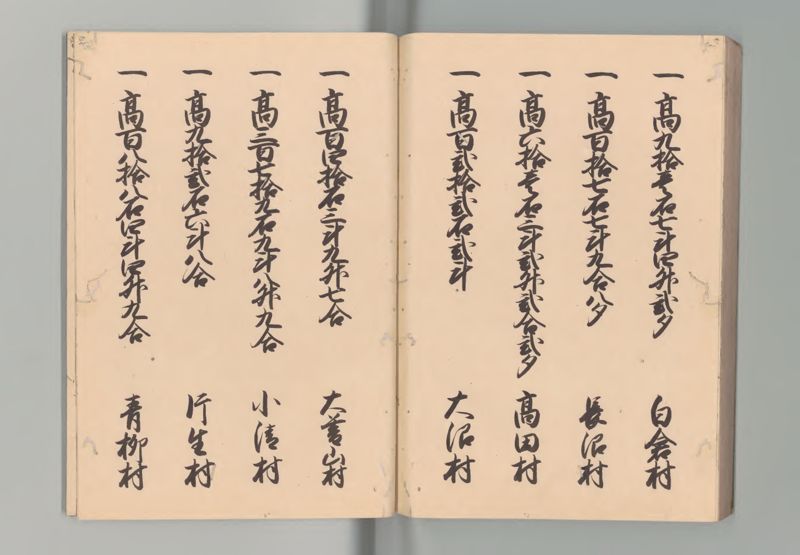 一 高九拾壱石七斗四升弐夕 白倉村
一 高百拾七石七斗九合八夕 長沼村
一 高六拾壱石三斗弐升弐合弐夕 高田村
一 高百弐拾弐石弐斗 大沼村
一 高百四拾石三斗九升七合 大菩山村
一 高三百七拾九石九斗八升九合 小清村
一 高九拾弐石六斗八合 行生村
一 高百八拾八石四斗四升九合 青柳村